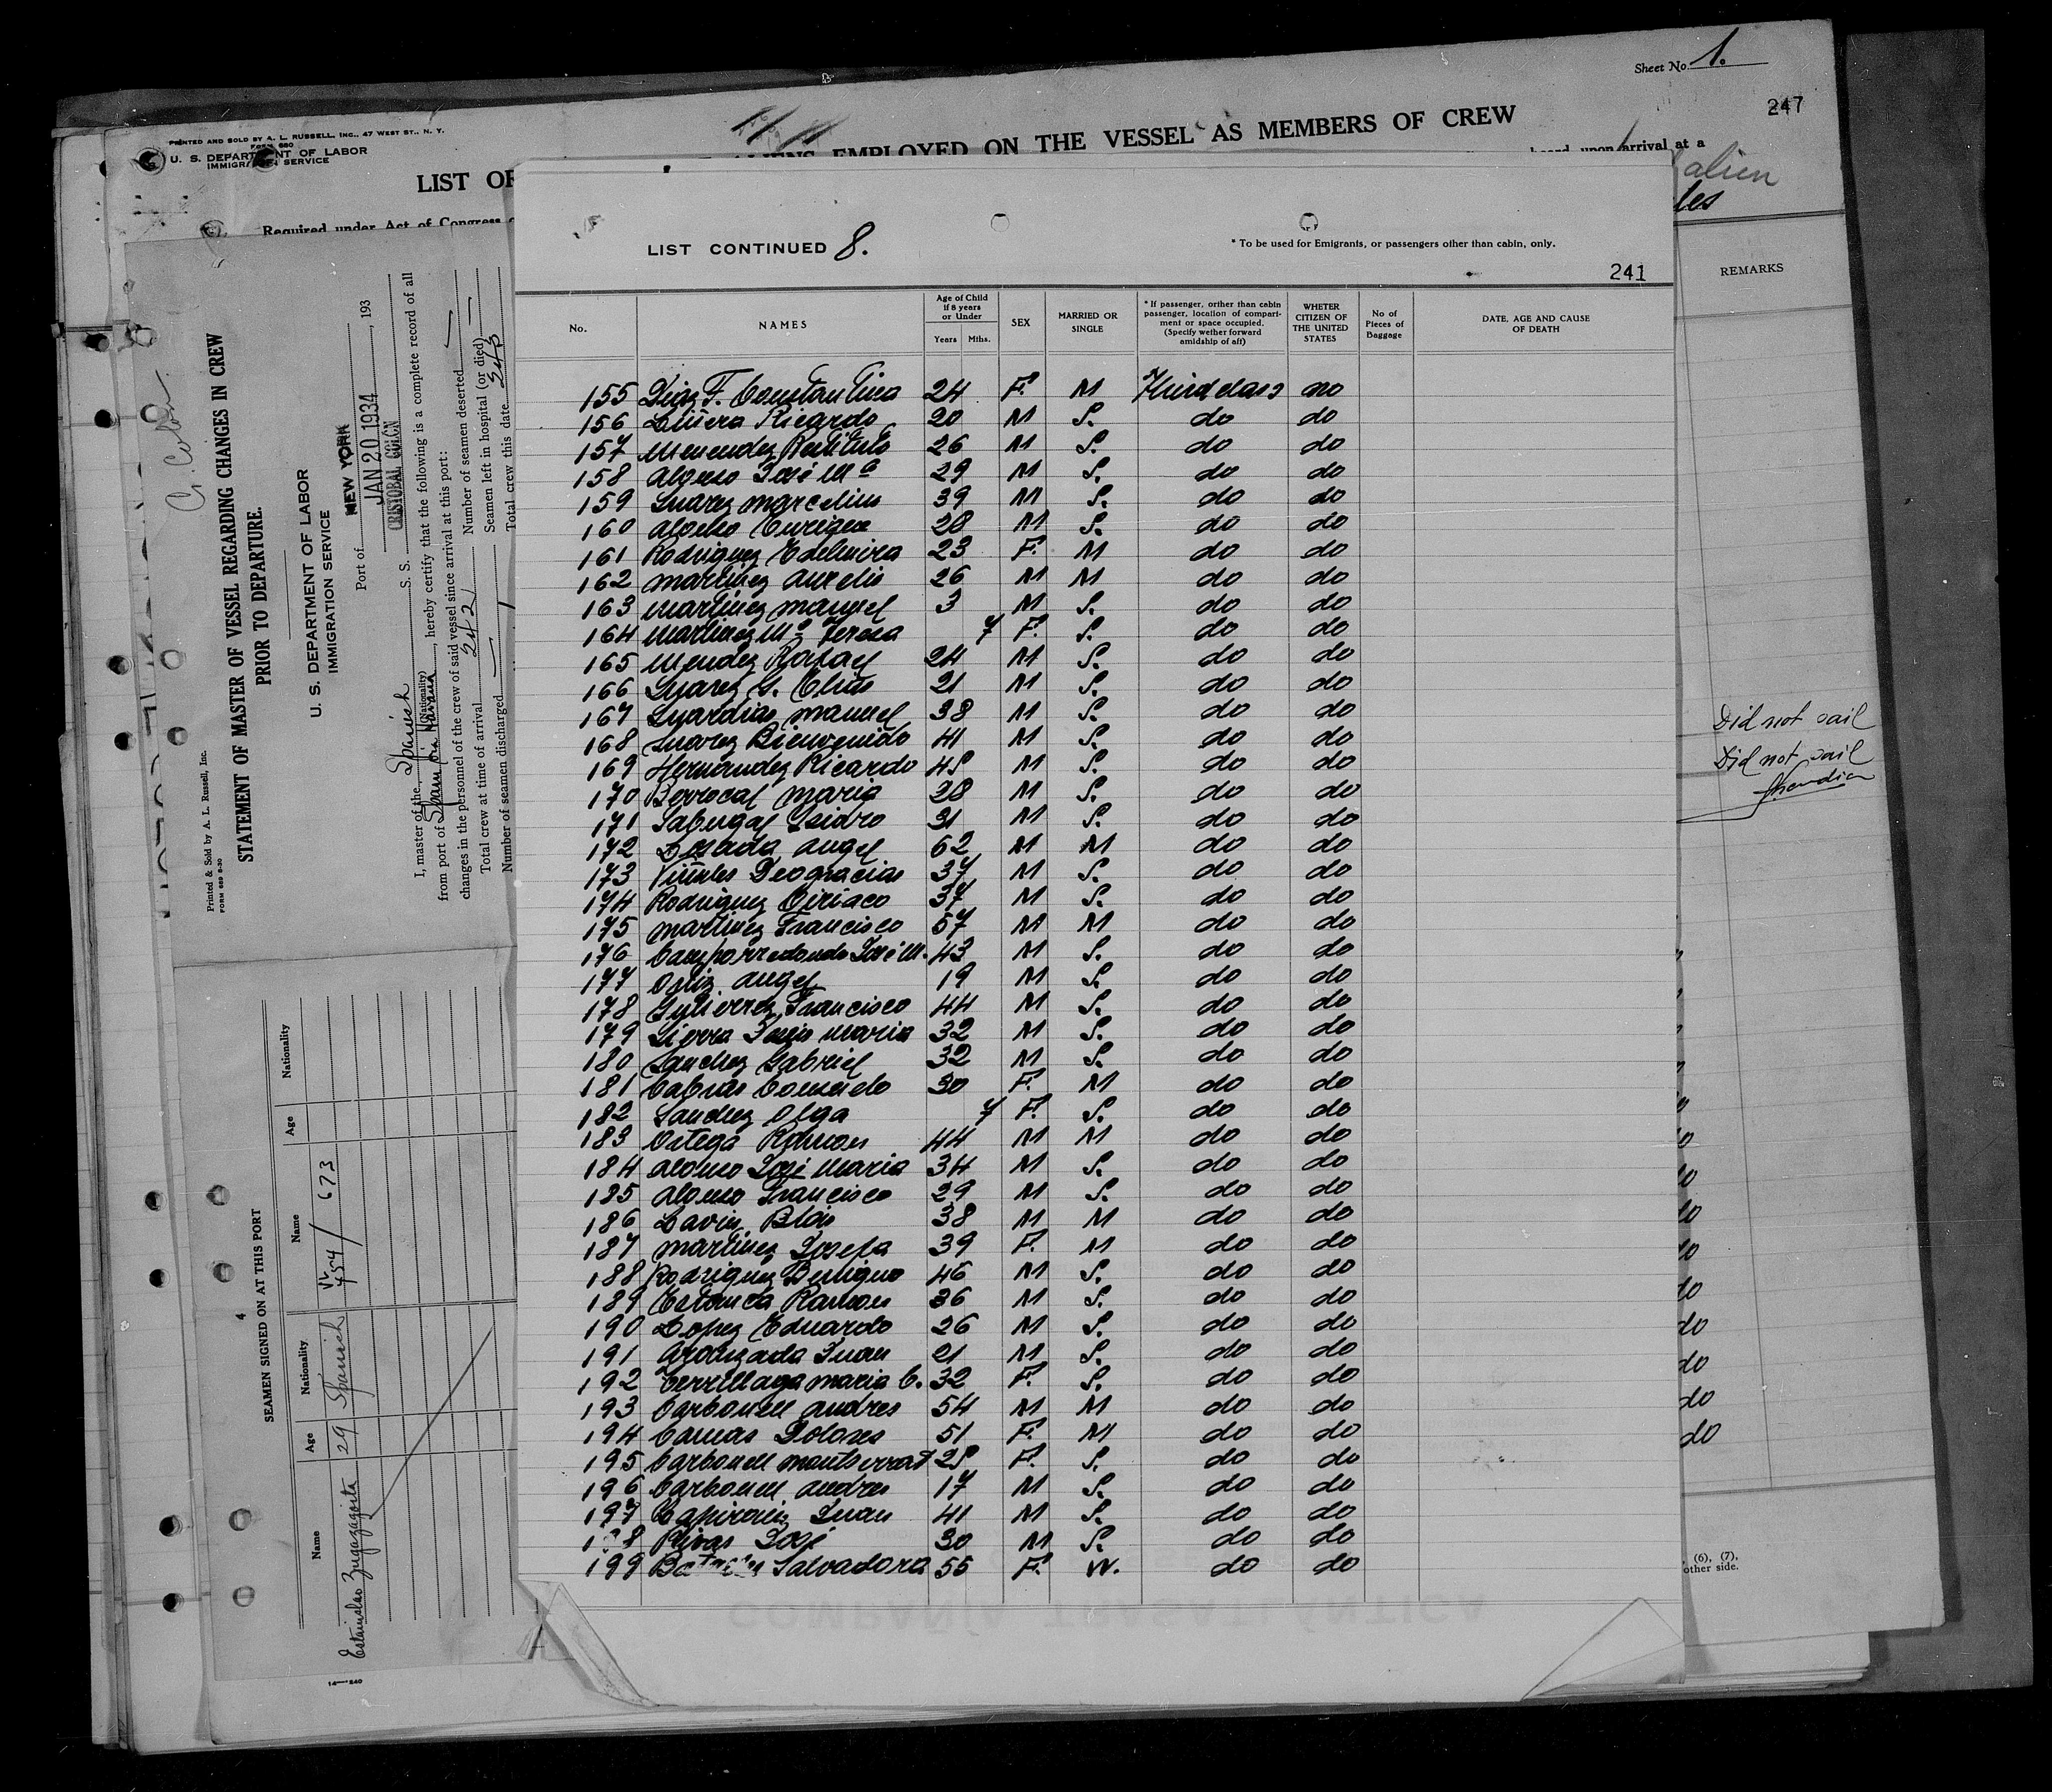 Sheet No. 1.
247
PRINTED AND SOLD BY A. L. RUSSELL, INC., 47 WEST ST., N. Y.
FORM 680
U. S. DEPARTMENT OF LABOR
IMMIGRATION SERVICE
LIST OF ALIENS EMPLOYED ON THE VESSEL AS MEMBERS OF CREW
Required under Act of Congress
upon arrival at a
alien
REMARKS
Did not sail
Did not sail
(6), (7),
other side.
LIST CONTINUED 8.
* To be used for Emigrants, or passengers other than cabin, only.
241
No. NAMES Age of Child if 8 years or Under Years Mths. SEX MARRIED OR SINGLE * If passenger, orther than cabin passenger, location of compartment or space occupied. (Specify wether forward amidship of aft) WHETER CITIZEN OF THE UNITED STATES No of Pieces of Baggage DATE, AGE AND CAUSE OF DEATH
155 Diaz F. Constantina 24 F. M Third class no
156 Ricardo 20 M S. do do
157 Menendez Restituto 26 M S. do do
158 Alonso José Mª 29 M S. do do
159 Suarez Marcelino 39 M S. do do
160 Alonso Enrique 28 M S. do do
161 Rodriguez Edelmira 23 F. M do do
162 Martinez Aurelio 26 M M do do
163 Martinez Manuel 3 M S. do do
164 Martinez Mª Teresa 7 F. S. do do
165 Mendez Rafael 24 M S. do do
166 Suarez S. Elias 21 M S. do do
167 Guardias Manuel 38 M S. do do
168 Suarez Bienvenido 41 M S. do do
169 Hernandez Ricardo 45 M S. do do
170 Berrocal Maria 28 M S. do do
171 Sabugal Isidro 31 M S. do do
172 Losada Angel 62 M M do do
173 Viñales Deogracias 37 M S. do do
174 Rodriguez Ciriaco 37 M S. do do
175 Martinez Francisco 57 M M do do
176 Camporredondo José M. 43 M S. do do
177 Ortiz Angel 19 M S. do do
178 Gutierrez Francisco 44 M S. do do
179 Sierra Jesús Maria 32 M S. do do
180 Sanchez Gabriel 32 M S. do do
181 Cabrias Consuelo 30 F. M do do
182 Sanchez Olga 7 F. S. do do
183 Ortega Ramon 44 M M do do
184 Alonso José Maria 34 M S. do do
185 Alonso Francisco 29 M S. do do
186 Lavin Blas 38 M M do do
187 Martinez Josefa 39 F. M do do
188 Rodriguez Benigno 46 M S. do do
189 Estancia Ramon 36 M S. do do
190 Lopez Eduardo 26 M S. do do
191 Aranzada Juan 21 M S. do do
192 Maria C. 32 F. S. do do
193 Carbonell Andres 54 M M do do
194 Camas Dolores 51 F. M do do
195 Carbonell Montserrat 25 F. S. do do
196 Carbonell Andres 17 M S. do do
197 Juan 41 M S. do do
198 Rivas José 30 M S. do do
199 Salvadora 55 F. W. do do
C. Colon
Printed & Sold by A. L. Russell, Inc.
FORM 689 8-30
STATEMENT OF MASTER OF VESSEL REGARDING CHANGES IN CREW
PRIOR TO DEPARTURE.
U. S. DEPARTMENT OF LABOR
IMMIGRATION SERVICE
Port of NEW YORK JAN 20 1934, 193
I, master of the Spanish (Nationality) S. S. CRISTOBAL COLON
from port of Spain via Havana, hereby certify that the following is a complete record of all
changes in the personnel of the crew of said vessel since arrival at this port:
Total crew at time of arrival 242 Number of seamen deserted
Number of seamen discharged Seamen left in hospital (or died)
Total crew this date 243
4
SEAMEN SIGNED ON AT THIS PORT
Name Age Nationality Name Age Nationality
Estanislao Zugazagoita 29 Spanish 673
14—240